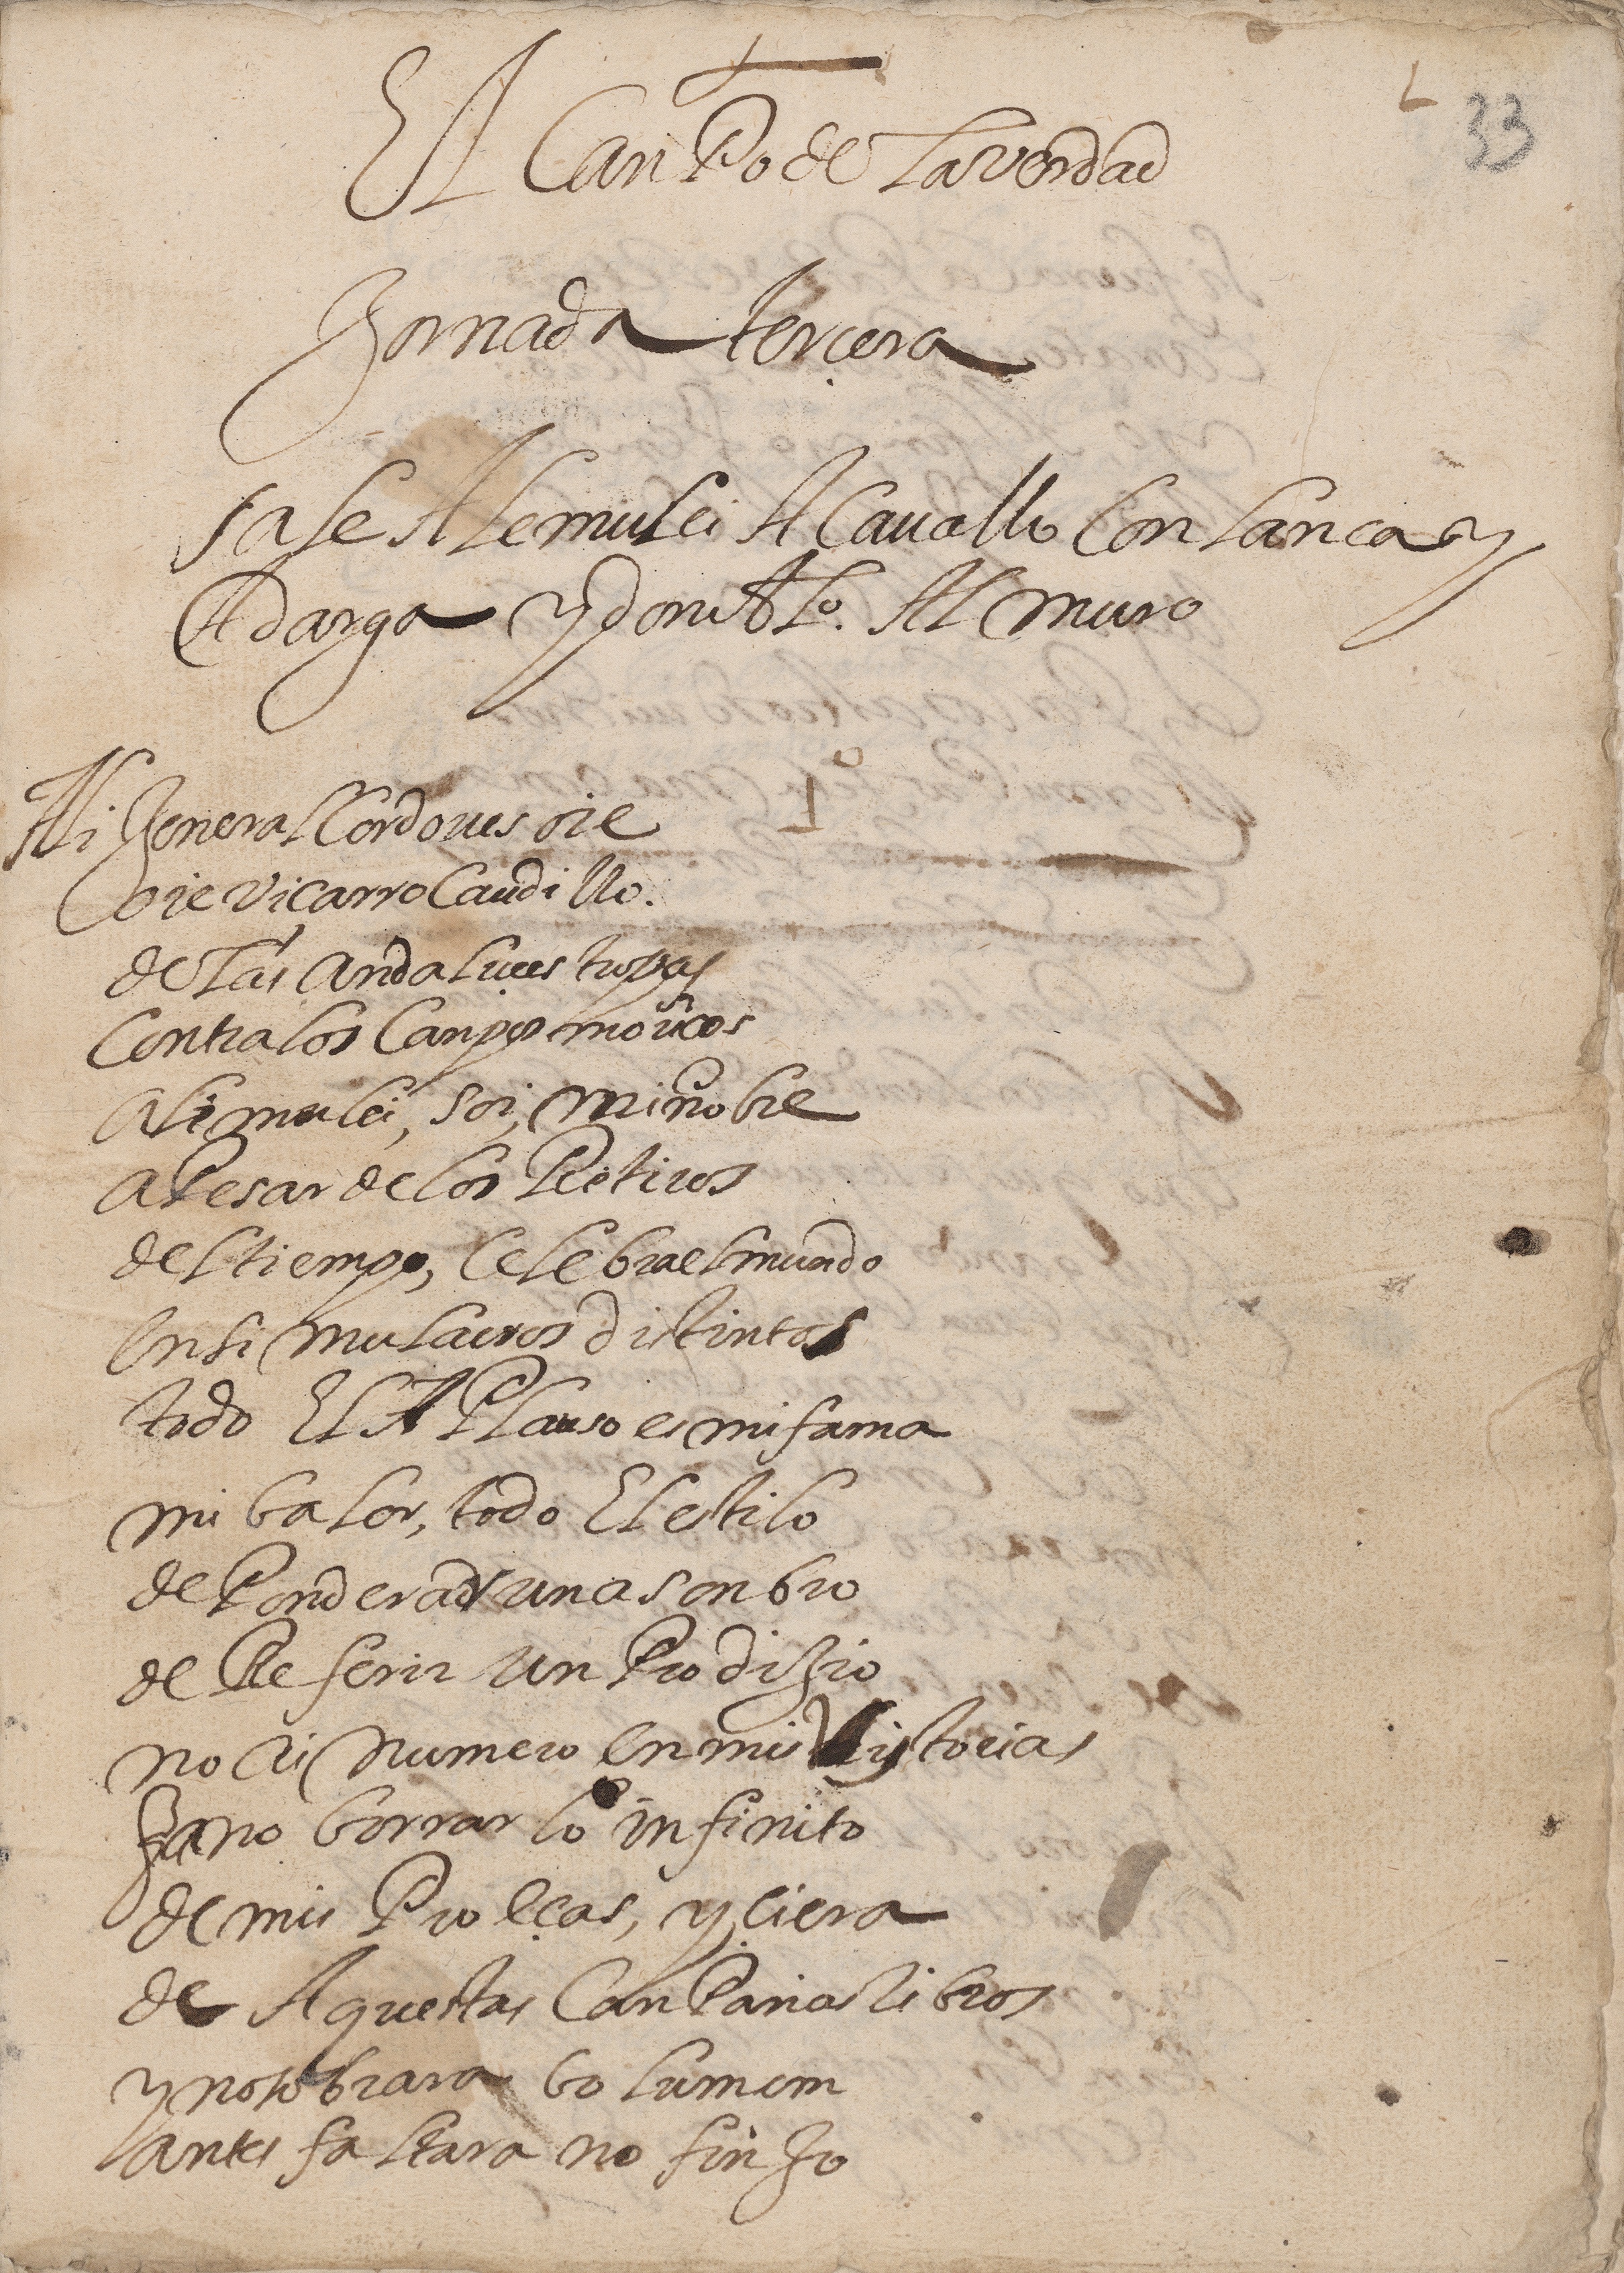 33
El Canpo de la verdad
Jornada tercera
sale Ale mulei A Cauallo Con lança y
Adarga y don Alo. Al muro
Ali Jeneral Cordoues oie
oie viçarro Caudillo.
de las andaluçes tropas
Contra los Canpos moricos
ali mulei, soi, mi nobre
a Pesar de los Retiros
del tiempo, Celebra el mundo
en simulacros distintos
todo El APlauso es mi fama
mi balor, todo El estilo
de Ponderar un asonbro
de Referir un Prodijio
no ai numero en mis istorias
para no borrar lo infinito
de mis Proeças, y çiera
de Aquestas CanPañas libros
y no sobrara bolumem
antes faltara no finjo